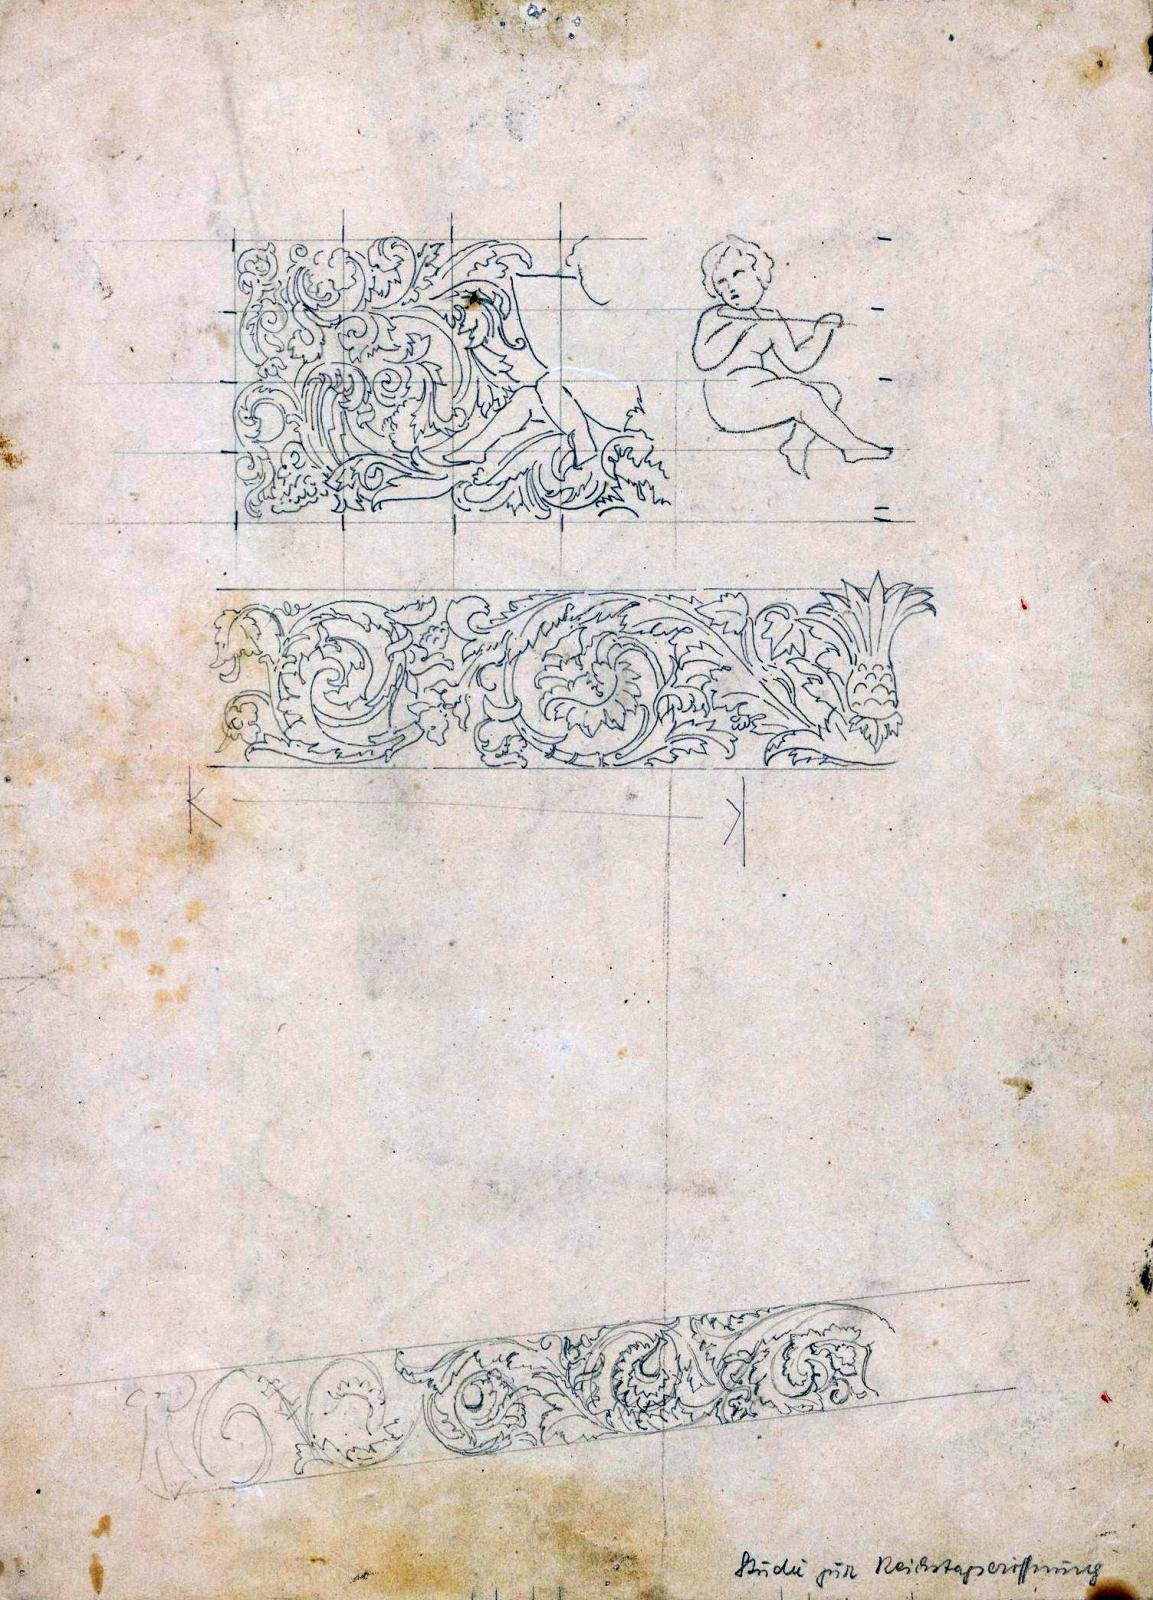 Studie zur Reichstagseröffnung